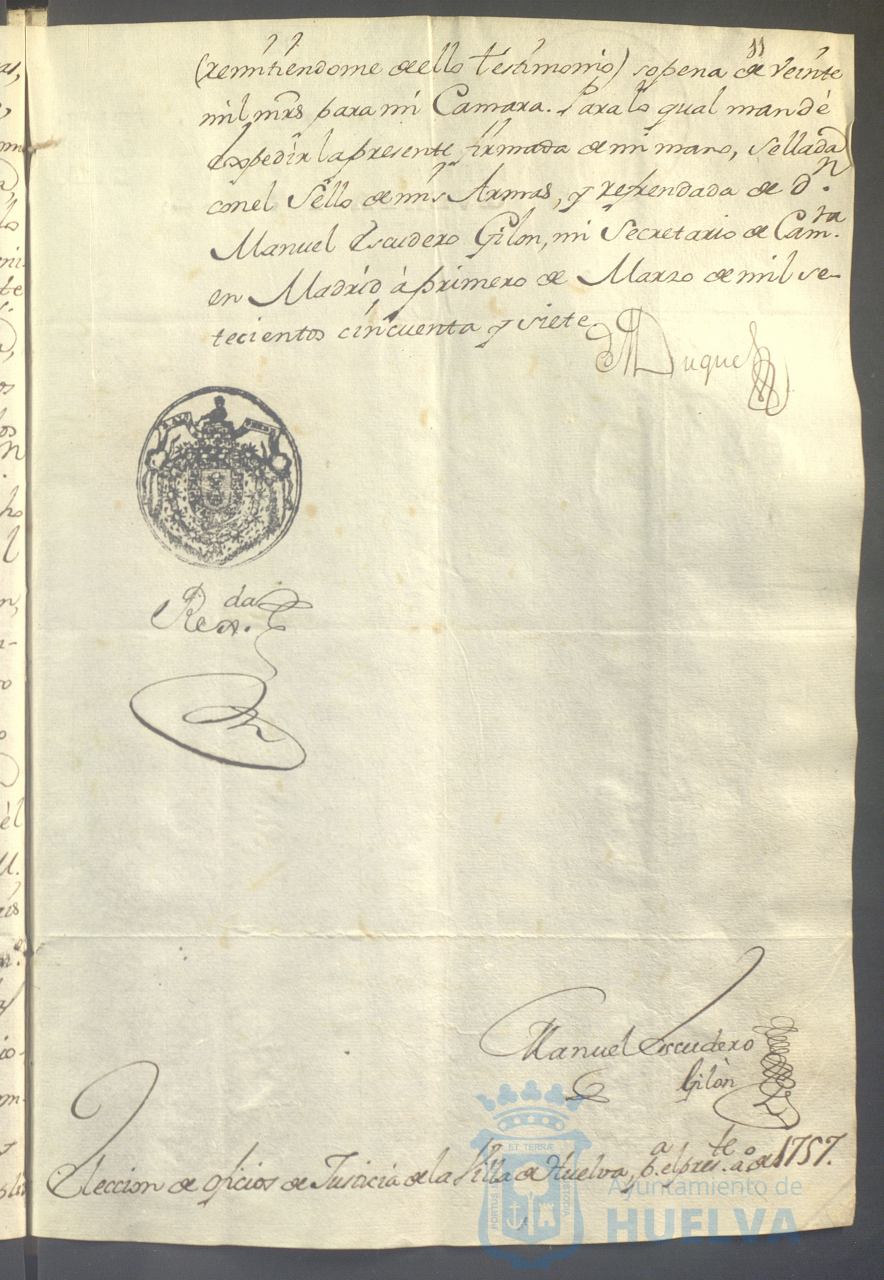 11
(remitiendome de ello testimonio) sopena de veinte
mil mrs para mi Camara. Para lo qual mandè
expedir la presente firmada de mi mano, sellada
con el Sello de mis Armas, y refrendada de dn.
Manuel Escudero Gilon, mi Secretario de Camra.
en Madrid à primero de Marzo de mil se-
tecientos cincuenta y siete
El Duque
Refda.
Manuel Escudero
Gilòn
Eleccion de oficios de Justicia de la Villa de Huelva, pa. el preste. ao. de 1757.
ET TERRÆ
PORTUS
CUSTODIA
Ayuntamiento de
HUELVA